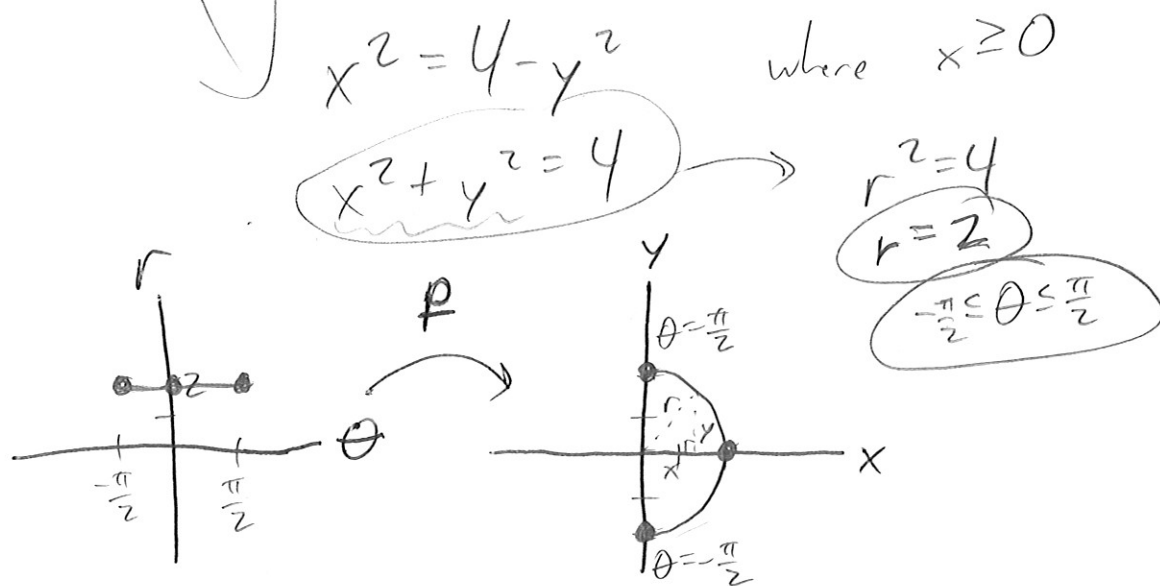 x² = 4 - y² where x ≥ 0
x² + y² = 4
r² = 4
r = 2
-π/2 ≤ θ ≤ π/2
r
2
θ
-π/2
π/2
P
y
θ=π/2
r
y
x
x
θ=-π/2